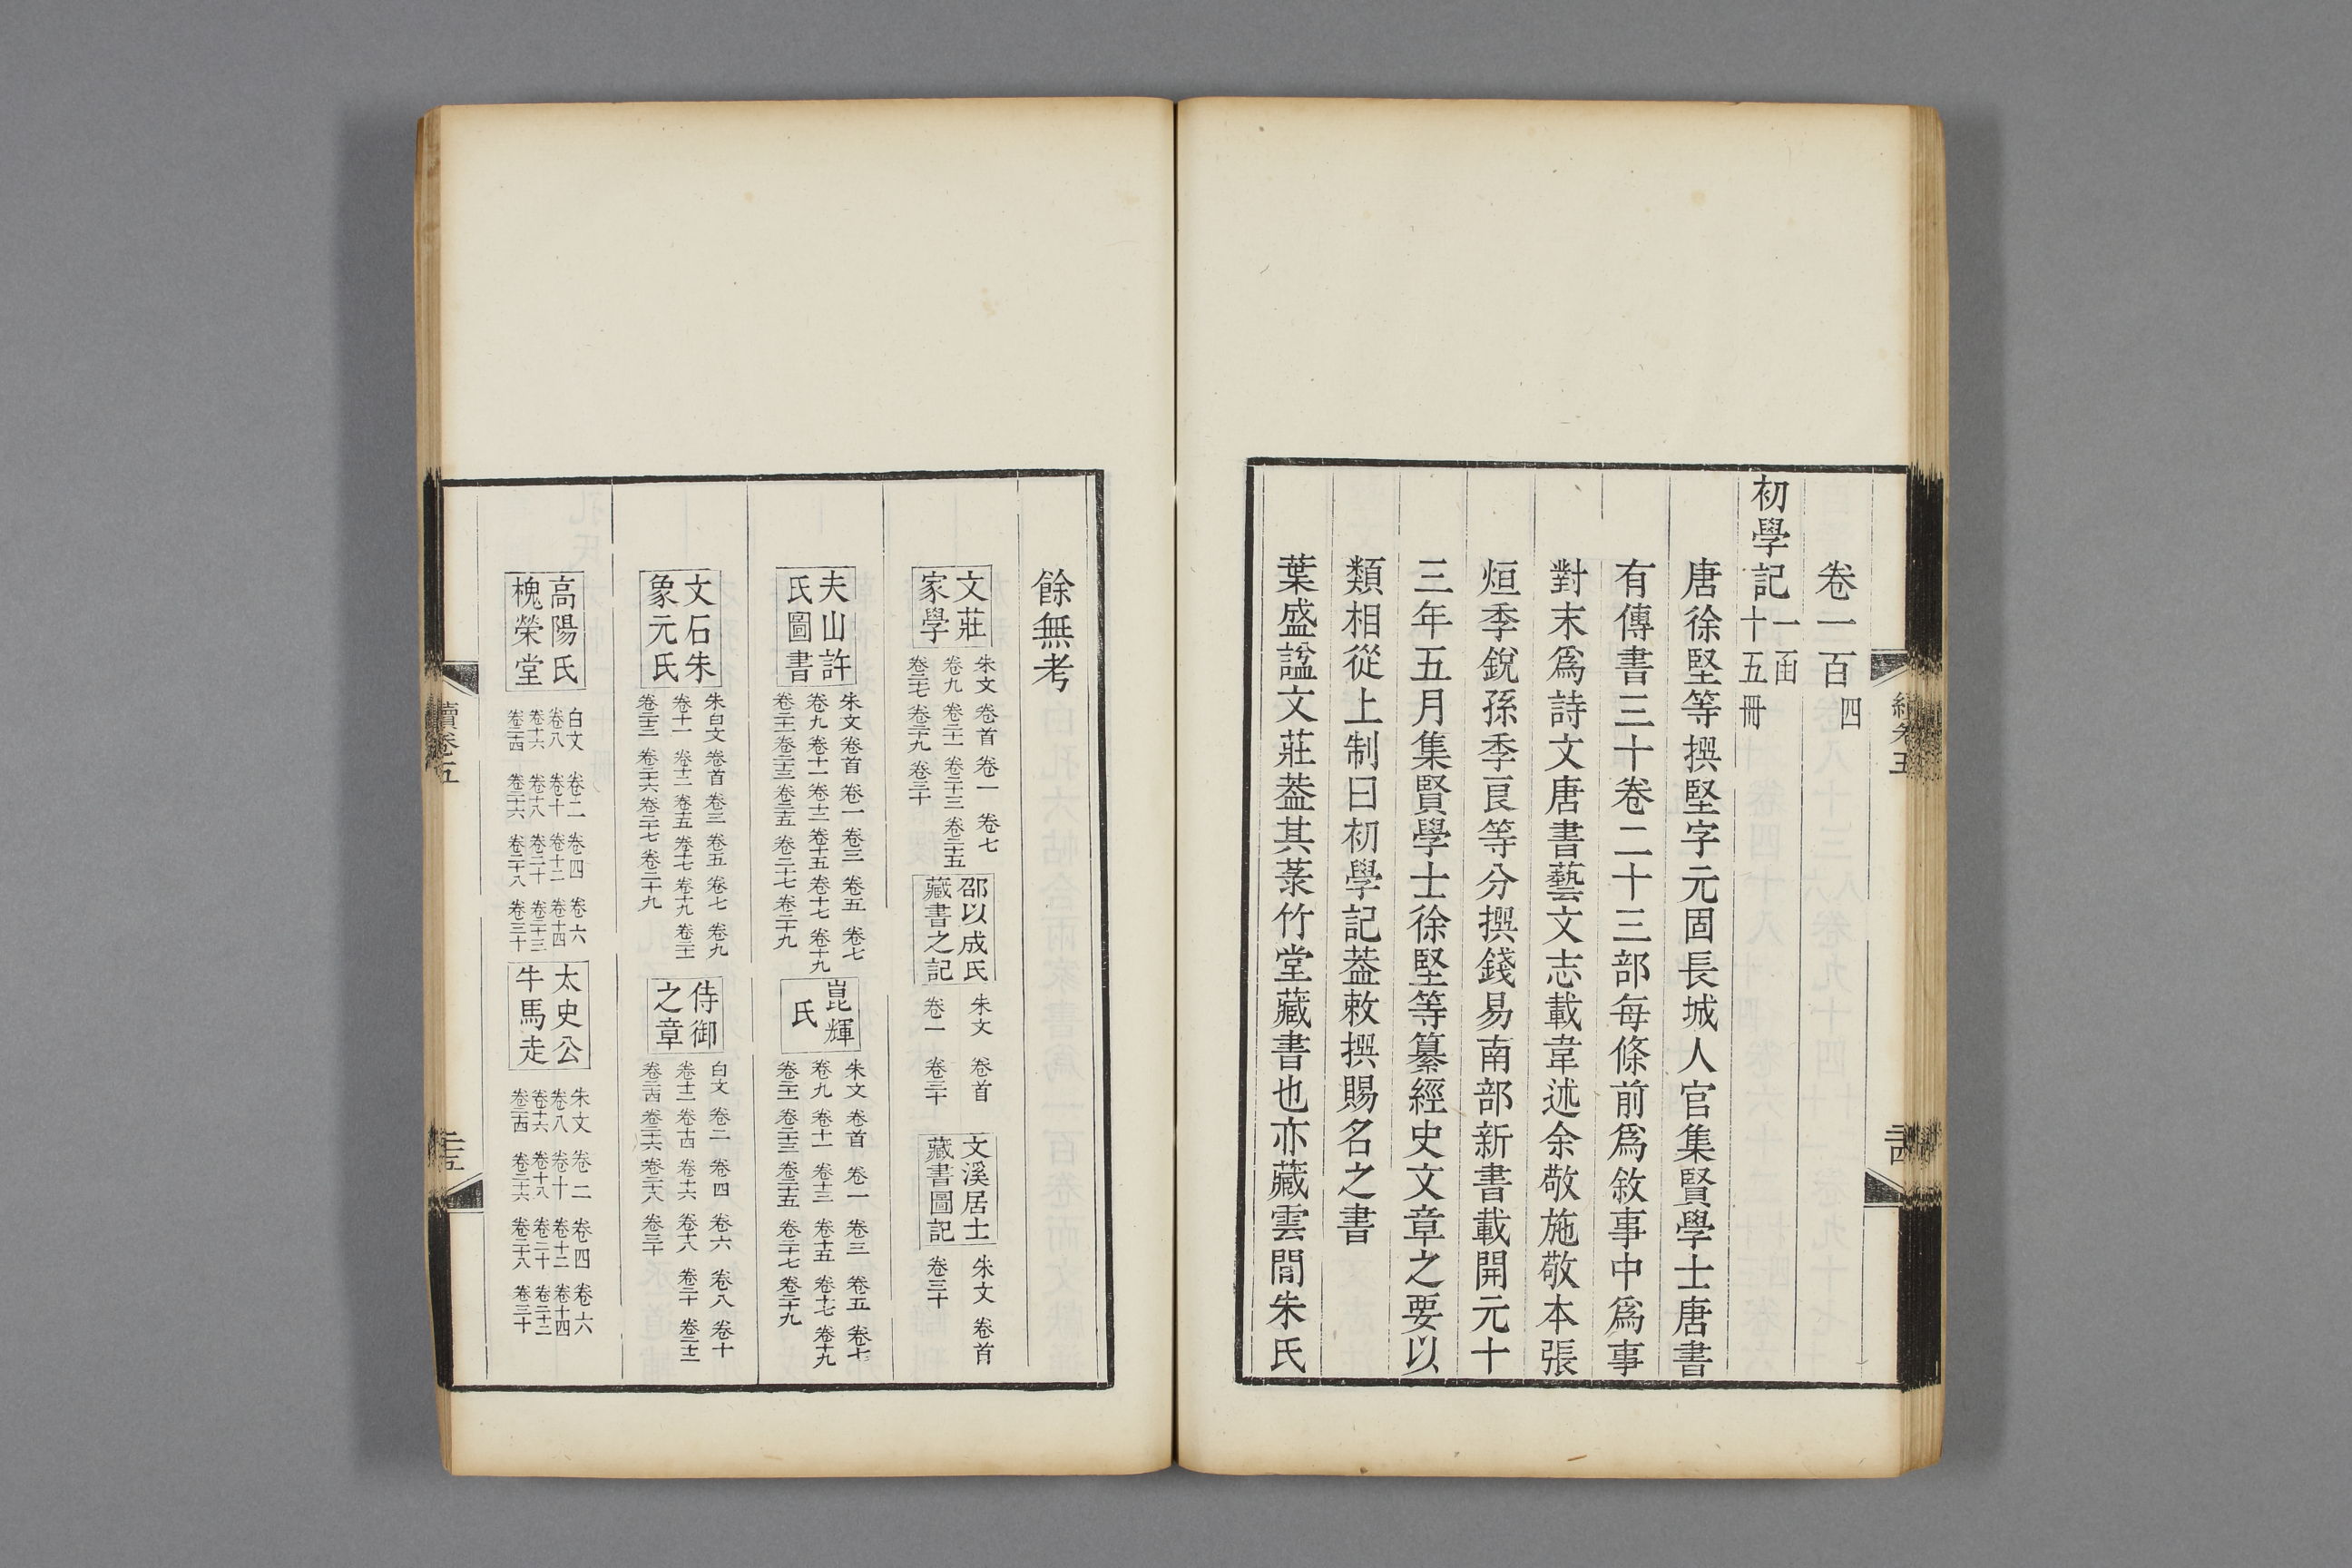 卷一百四
初學記一函十五冊
唐徐堅等撰堅字元固長城人官集賢學士唐書
有傳書三十卷二十三部每條前爲敘事中爲事
對末爲詩文唐書藝文志載韋述余敬施敬本張
烜季銳孫季良等分撰錢易南部新書載開元十
三年五月集賢學士徐堅等纂經史文章之要以
類相從上制曰初學記葢敕撰賜名之書
葉盛諡文莊葢其菉竹堂藏書也亦藏雲閒朱氏
餘無考
文莊家學 朱文 卷首 卷一 卷七 卷九 卷二十一 卷二十三 卷二十五 卷二十七 卷二十九 卷三十 邵以成氏藏書之記 朱文 卷首 卷一 卷三十 文溪居士藏書圖記 朱文 卷首 卷三十
夫山許氏圖書 朱文 卷首 卷一 卷三 卷五 卷七 卷九 卷十一 卷十三 卷十五 卷十七 卷十九 卷二十一 卷二十三 卷二十五 卷二十七 卷二十九 崑輝氏 朱文 卷首 卷一 卷三 卷五 卷七 卷九 卷十一 卷十三 卷十五 卷十七 卷十九 卷二十一 卷二十三 卷二十五 卷二十七 卷二十九
文石朱象元氏 朱白文 卷首 卷三 卷五 卷七 卷九 卷十一 卷十二 卷十五 卷十七 卷十九 卷二十一 卷二十三 卷二十六 卷二十七 卷二十九 侍御之章 白文 卷二 卷四 卷六 卷八 卷十 卷十二 卷十四 卷十六 卷十八 卷二十 卷二十二 卷二十四 卷二十六 卷二十八 卷三十
高陽氏槐榮堂 白文 卷二 卷四 卷六 卷八 卷十 卷十二 卷十四 卷十六 卷十八 卷二十 卷二十三 卷二十四 卷二十六 卷二十八 卷三十 太史公牛馬走 朱文 卷二 卷四 卷六 卷八 卷十 卷十二 卷十四 卷十六 卷十八 卷二十 卷二十二 卷二十四 卷二十六 卷二十八 卷三十
續卷五